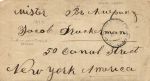 Mister
Jacob Druckerman
50 Canal Street
New York America